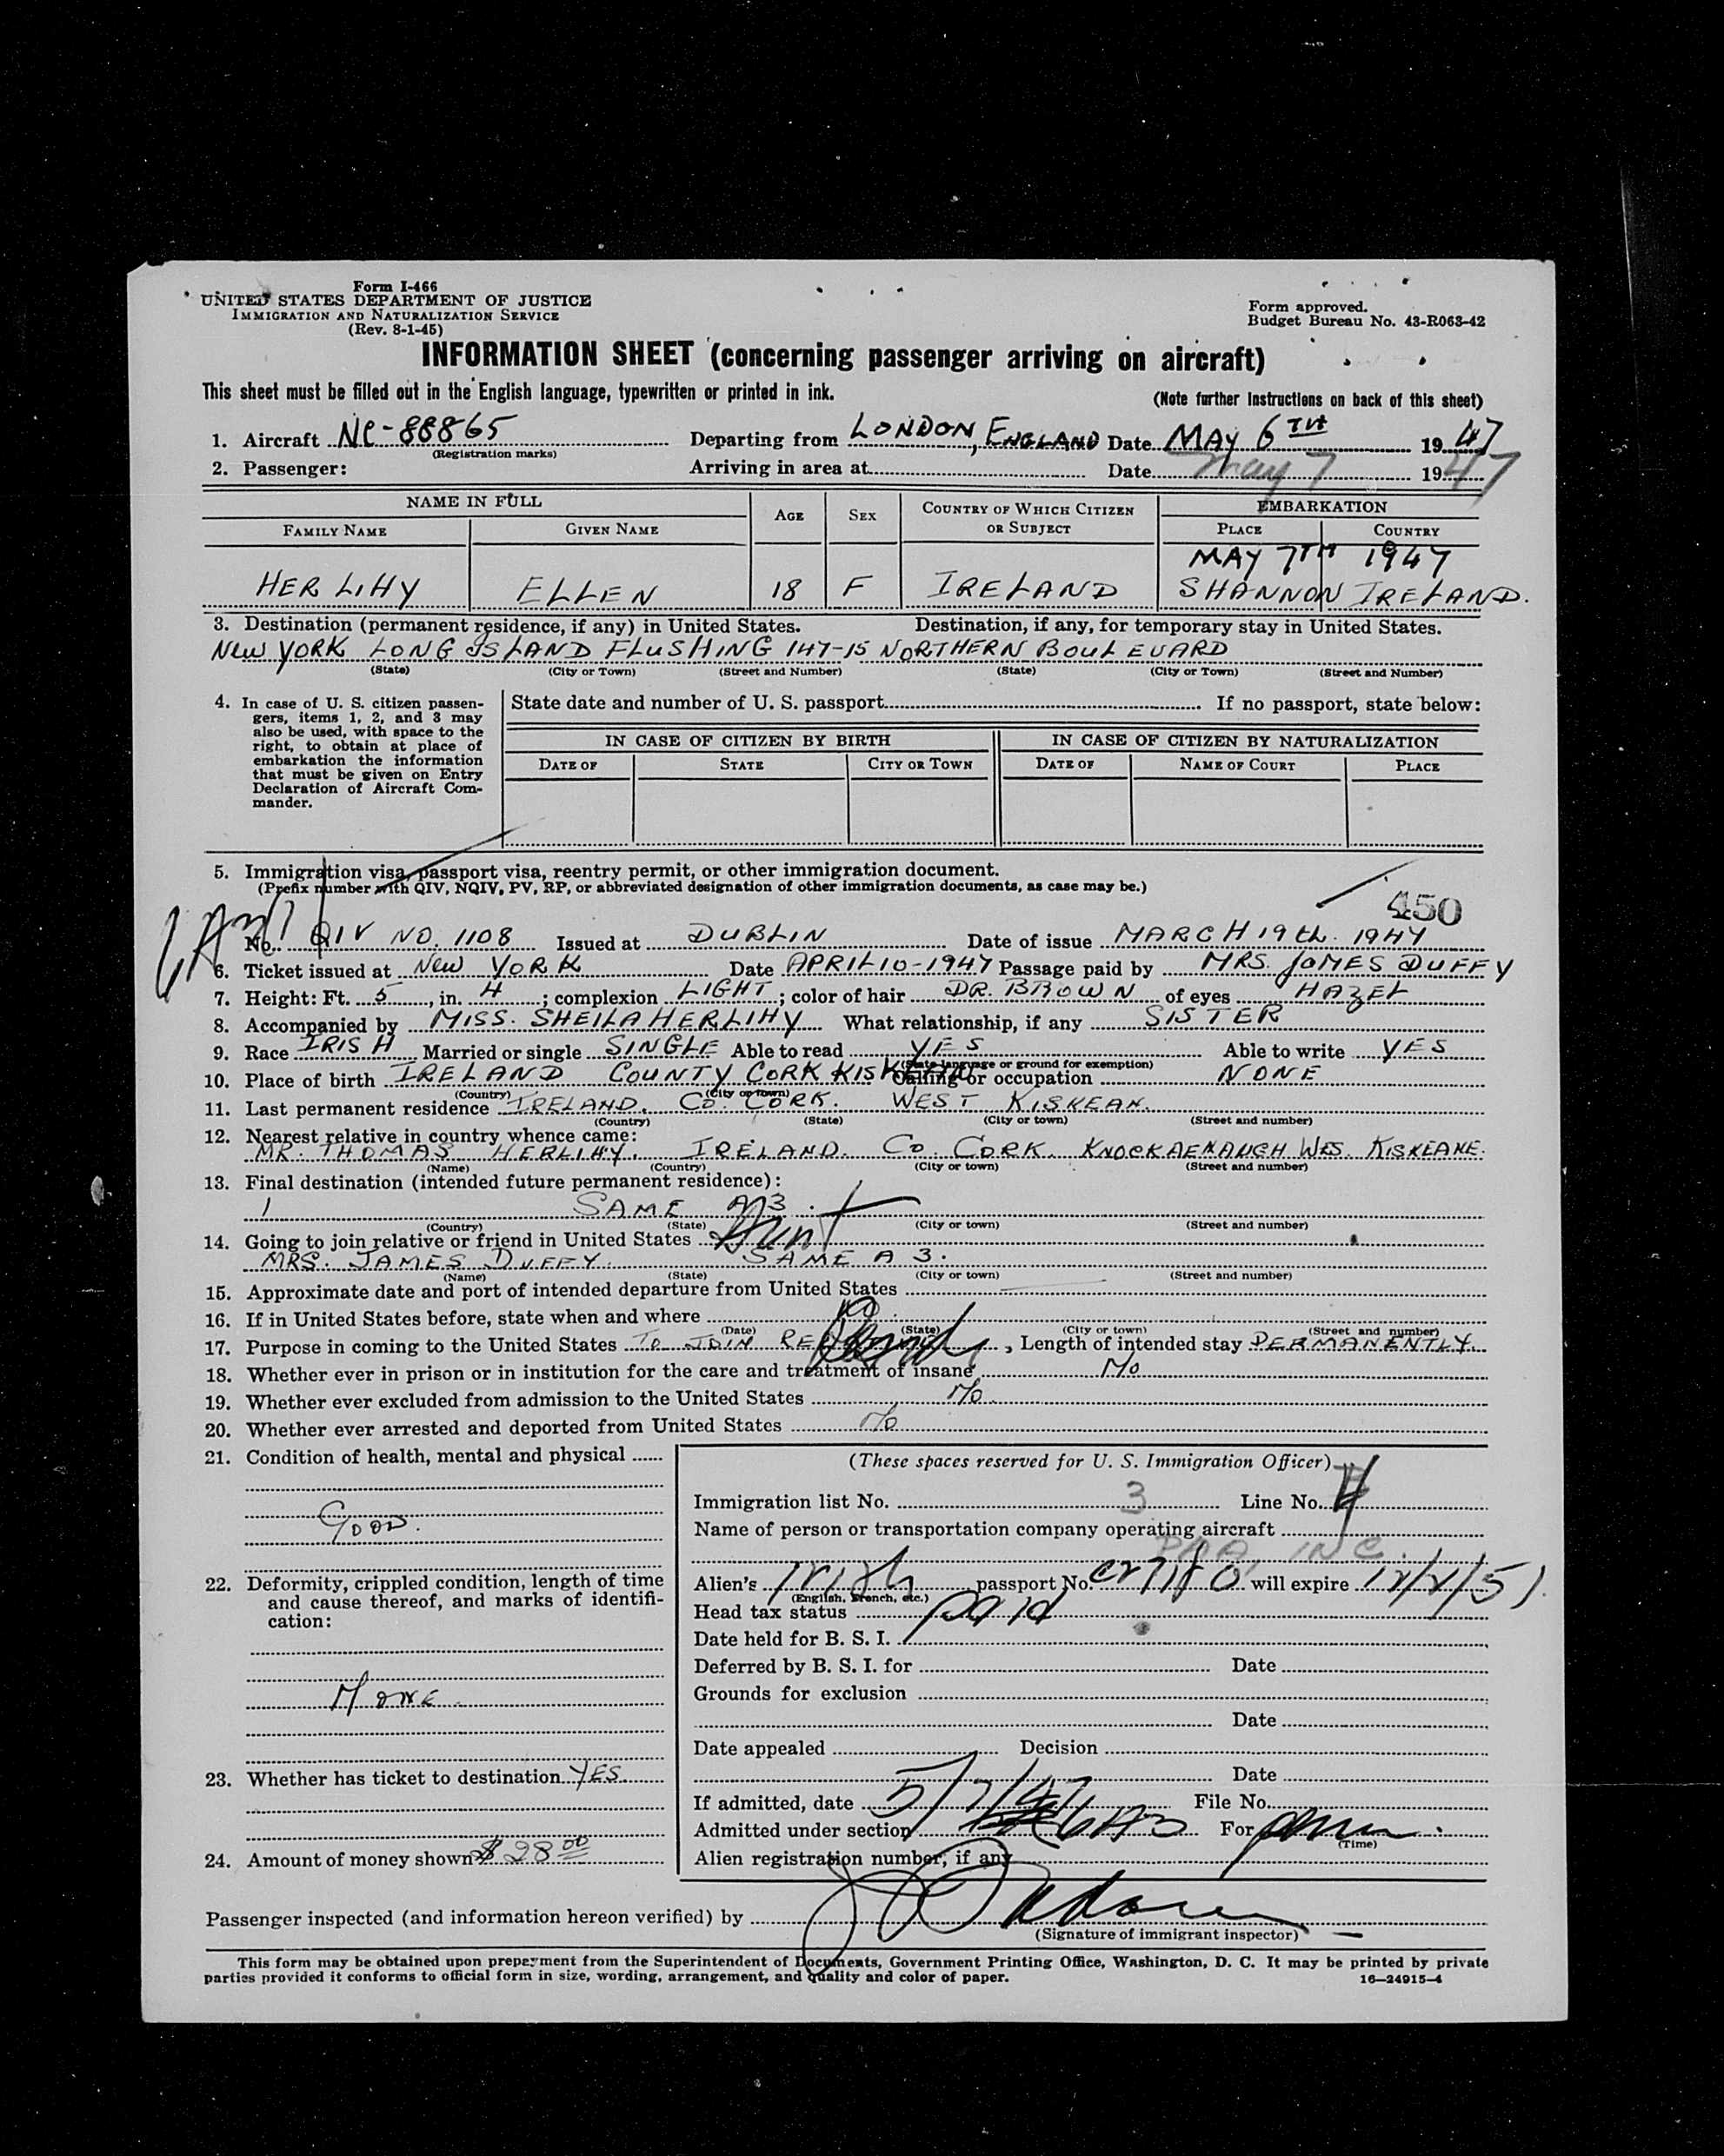 Form I-466
UNITED STATES DEPARTMENT OF JUSTICE
IMMIGRATION AND NATURALIZATION SERVICE
(Rev. 8-1-45)
Form approved.
Budget Bureau No. 43-R063-42
INFORMATION SHEET (concerning passenger arriving on aircraft)
This sheet must be filled out in the English language, typewritten or printed in ink. (Note further instructions on back of this sheet)
1. Aircraft NC-88865 Departing from LONDON, ENGLAND Date MAY 6TH 1947
(Registration marks)
2. Passenger: Arriving in area at Date May 7 1947
NAME IN FULL AGE SEX COUNTRY OF WHICH CITIZEN OR SUBJECT EMBARKATION
FAMILY NAME GIVEN NAME PLACE COUNTRY
MAY 7TH 1947
HERLIHY ELLEN 18 F IRELAND SHANNON IRELAND.
3. Destination (permanent residence, if any) in United States. Destination, if any, for temporary stay in United States.
NEW YORK LONG ISLAND FLUSHING 147-15 NORTHERN BOULEVARD
(State) (City or Town) (Street and Number) (State) (City or Town) (Street and Number)
4. In case of U. S. citizen passen-
gers, items 1, 2, and 3 may
also be used, with space to the
right, to obtain at place of
embarkation the information
that must be given on Entry
Declaration of Aircraft Com-
mander.
State date and number of U. S. passport If no passport, state below:
IN CASE OF CITIZEN BY BIRTH IN CASE OF CITIZEN BY NATURALIZATION
DATE OF STATE CITY OR TOWN DATE OF NAME OF COURT PLACE
5. Immigration visa, passport visa, reentry permit, or other immigration document.
(Prefix number with QIV, NQIV, PV, RP, or abbreviated designation of other immigration documents, as case may be.)
450
No. QIV NO. 1108 Issued at DUBLIN Date of issue MARCH 19th. 1947
6. Ticket issued at New YORK Date APRIL 10-1947 Passage paid by MRS. JAMES DUFFY
7. Height: Ft. 5, in. 4; complexion LIGHT; color of hair DR. BROWN of eyes HAZEL
8. Accompanied by MISS. SHEILA HERLIHY What relationship, if any SISTER
9. Race IRISH Married or single SINGLE Able to read YES Able to write YES
(State language or ground for exemption)
10. Place of birth IRELAND COUNTY CORK KISKEAN Calling or occupation NONE
(Country) (City or town)
11. Last permanent residence IRELAND. CO. CORK. WEST KISKEAN.
(Country) (State) (City or town) (Street and number)
12. Nearest relative in country whence came:
MR. THOMAS HERLIHY. IRELAND. CO. CORK. WES. KISKEANE.
(Name) (Country) (City or town) (Street and number)
13. Final destination (intended future permanent residence):
1 SAME A 3.
(Country) (State) (City or town) (Street and number)
14. Going to join relative or friend in United States Aunt
MRS. JAMES DUFFY. SAME A 3.
(Name) (State) (City or town) (Street and number)
15. Approximate date and port of intended departure from United States
16. If in United States before, state when and where
(Date) (State) (City or town) (Street and number)
17. Purpose in coming to the United States TO JOIN , Length of intended stay PERMANENTLY.
18. Whether ever in prison or in institution for the care and treatment of insane No
19. Whether ever excluded from admission to the United States No.
20. Whether ever arrested and deported from United States No
21. Condition of health, mental and physical
GOOD.
22. Deformity, crippled condition, length of time
and cause thereof, and marks of identifi-
cation:
NONE.
23. Whether has ticket to destination YES.
24. Amount of money shown $ 28 00
(These spaces reserved for U. S. Immigration Officer)
Immigration list No. 3 Line No.
Name of person or transportation company operating aircraft
PAA, INC.
Alien's Irish passport No. will expire
(English, French, etc.)
Head tax status paid
Date held for B. S. I.
Deferred by B. S. I. for Date
Grounds for exclusion
Date
Date appealed Decision
Date
If admitted, date 5/7/47 File No.
Admitted under section 6A3 For perm.
(Time)
Alien registration number, if any
Passenger inspected (and information hereon verified) by
(Signature of immigrant inspector)
This form may be obtained upon prepayment from the Superintendent of Documents, Government Printing Office, Washington, D. C. It may be printed by private
parties provided it conforms to official form in size, wording, arrangement, and quality and color of paper. 16—24915-4